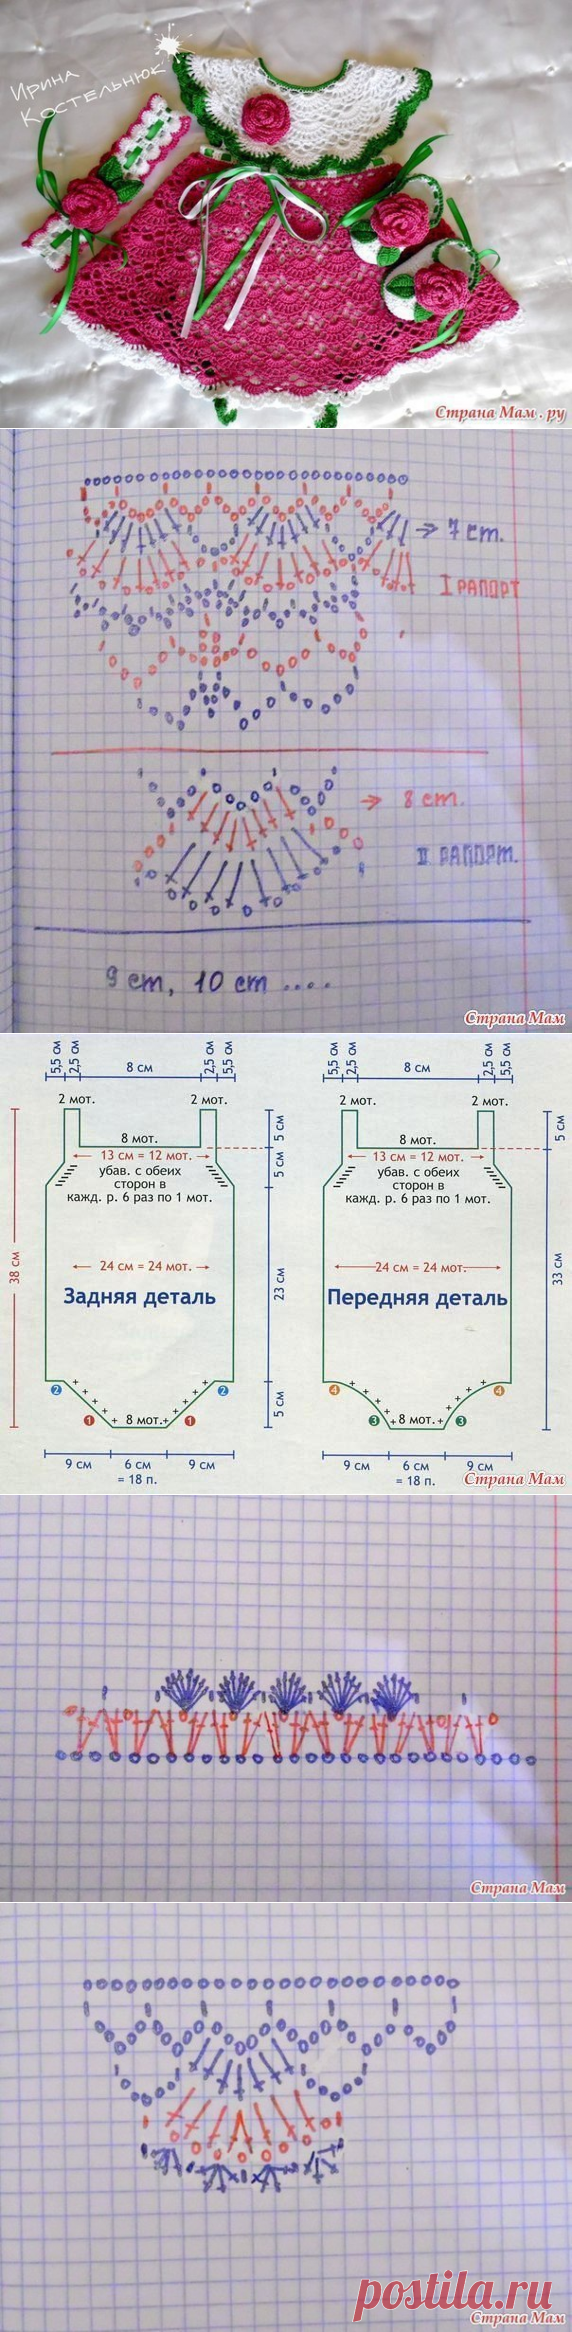 Ирина
Костельнюк
Страна Мам . ру
7 ст.
I РАПОРТ
8 ст.
II РАПОРТ.
9 ст, 10 ст ....
Страна Мам
5,5 см
2,5 см
8 см
2,5 см
5,5 см
5,5 см
2,5 см
8 см
2,5 см
5,5 см
2 мот.
2 мот.
2 мот.
2 мот.
8 мот.
8 мот.
5 см
5 см
13 см = 12 мот.
13 см = 12 мот.
убав. с обеих
сторон в
кажд. р. 6 раз по 1 мот.
убав. с обеих
сторон в
кажд. р. 6 раз по 1 мот.
5 см
38 см
24 см = 24 мот.
24 см = 24 мот.
23 см
33 см
Задняя деталь
Передняя деталь
2
2
4
4
1
8 мот.
1
3
8 мот.
3
5 см
9 см
6 см
9 см
9 см
6 см
9 см
= 18 п.
= 18 п.
Страна Мам
Страна Мам
postila.ru
Страна Мам